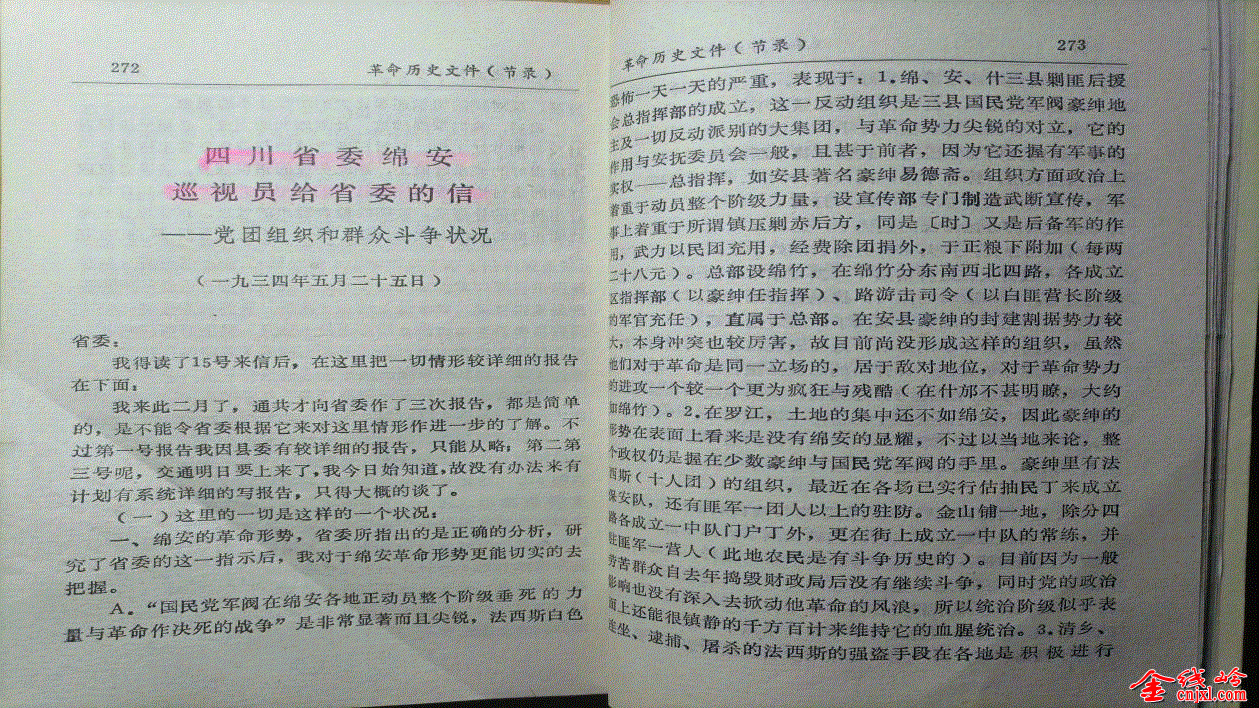 272
革命历史文件（节录）
四川省委绵安
巡视员给省委的信
——党团组织和群众斗争状况
（一九三四年五月二十五日）
省委：
我得读了15号来信后，在这里把一切情形较详细的报告
在下面：
我来此二月了，通共才向省委作了三次报告，都是简单
的，是不能令省委根据它来对这里情形作进一步的了解。不
过第一号报告我因县委有较详细的报告，只能从略；第二第
三号呢，交通明日要上来了，我今日始知道，故没有办法来有
计划有系统详细的写报告，只得大概的谈了。
（一）这里的一切是这样的一个状况：
一、绵安的革命形势，省委所指出的是正确的分析，研
究了省委的这一指示后，我对于绵安革命形势更能切实的去
把握。
A。“国民党军阀在绵安各地正动员整个阶级垂死的力
量与革命作决死的战争”是非常显著而且尖锐，法西斯白色
革命历史文件（节录）
273
恐怖一天一天的严重，表现于：1.绵、安、什三县剿匪后援
会总指挥部的成立，这一反动组织是三县国民党军阀豪绅地
主及一切反动派别的大集团，与革命势力尖锐的对立，它的
作用与安抚委员会一般，且甚于前者，因为它还握有军事的
实权——总指挥，如安县著名豪绅易德斋。组织方面政治上
着重于动员整个阶级力量，设宣传部专门制造武断宣传，军
事上着重于所谓镇压剿赤后方，同是〔时〕又是后备军的作
用，武力以民团充用，经费除团捐外，于正粮下附加（每两
二十八元）。总部设绵竹，在绵竹分东南西北四路，各成立
区指挥部（以豪绅任指挥）、路游击司令（以白匪营长阶级
的军官充任），直属于总部。在安县豪绅的封建割据势力较
大，本身冲突也较厉害，故目前尚没形成这样的组织，虽然
他们对于革命是同一立场的，居于敌对地位，对于革命势力
的进攻一个较一个更为疯狂与残酷（在什邡不甚明瞭，大约
如绵竹）。2.在罗江，土地的集中还不如绵安，因此豪绅的
形势在表面上看来是没有绵安的显耀，不过以当地来论，整
个政权仍是握在少数豪绅与国民党军阀的手里。豪绅里有法
西斯（十人团）的组织，最近在各场已实行估抽民丁来成立
保安队，还有匪军一团人以上的驻防。金山铺一地，除分四
路各成立一中队门户丁外，更在街上成立一中队的常练，并
驻匪军一营人（此地农民是有斗争历史的）。目前因为一般
劳苦群众自去年捣毁财政局后没有继续斗争，同时党的政治
影响也没有深入去掀动他革命的风浪，所以统治阶级似乎表
面上还能很镇静的千方百计来维持它的血腥统治。3.清乡、
连坐、逮捕、屠杀的法西斯的强盗手段在各地是积极进行
金线岭
cnjxl.com